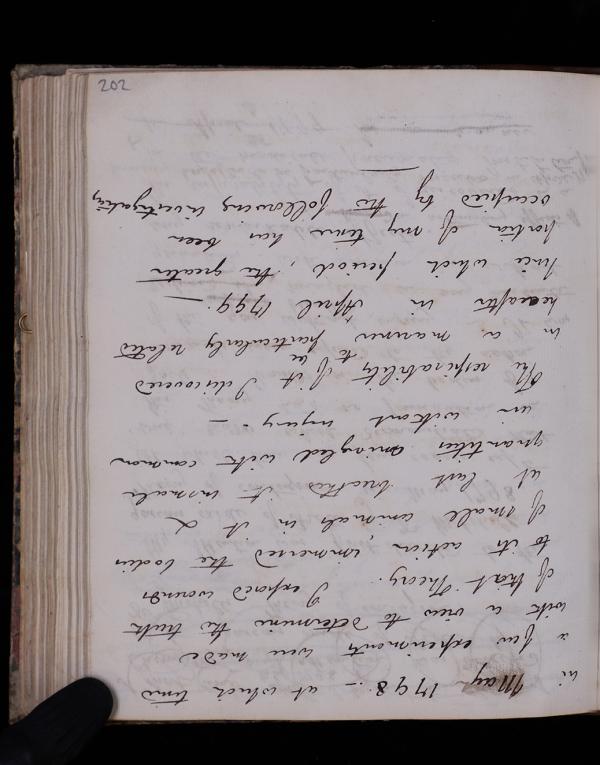 202
in May 1798. — at which time
a few experiments were made
with a view to determine the truth
of that Theory. I exposed wounds
to its action, immersed the bodies
of small animals in it &
at last breathed it in small
quantities mingled with common
air without injury. —
The respirability of it I discovered
in a manner to be particularly related
hereafter in April 1799. —
Since which period, the greater
portion of my time has been
occupied by the following investigation